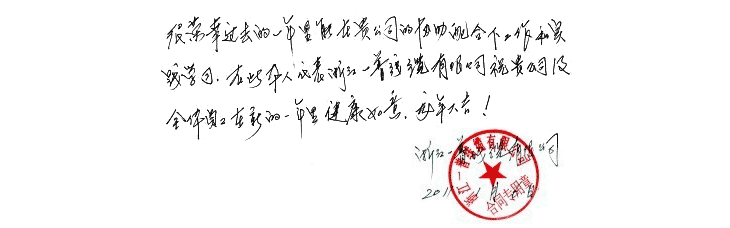 很荣幸过去的一年里能在贵公司的协助配合下工作和实
践学习，在此本人代表浙江一普 有限公司祝贵公司及
全体员工在新的一年里健康如意，万事大吉！
浙江一普 有限公司
201
合同专用章